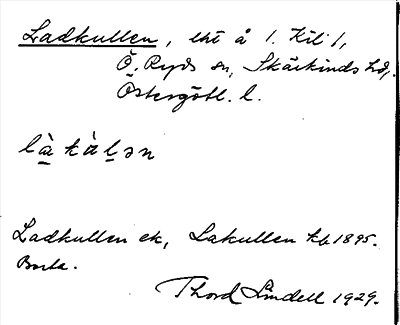 Ladkullen, lht å 1. Kil 1,
Ö. Ryds sn, Skärkinds hd,
Östergötl. l.
là kàlən
Ladkullen ek, Lakullen kb 1895.
Borta.
Thord Lindell 1929.